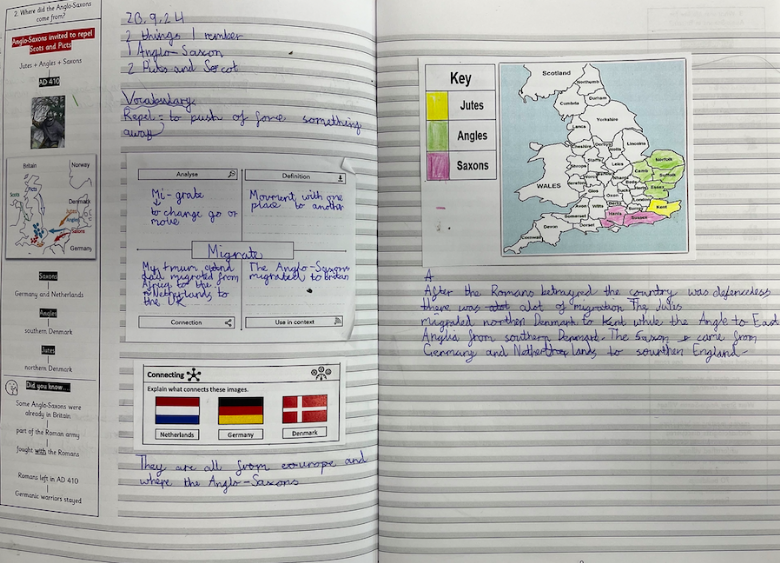 2. Where did the Anglo-Saxons
come from?
Anglo-Saxons invited to repel
Scots and Picts
Jutes + Angles + Saxons
AD 410
Britain
Norway
Denmark
Germany
Saxons
Germany and Netherlands
Angles
southern Denmark
Jutes
northern Denmark
Did you know...
Some Anglo-Saxons were
already in Britain
part of the Roman army
fought with the Romans
Romans left in AD 410
Germanic warriors stayed
23.9.24
2 things I rember
1 Anglo-Saxon
2 Picts and Socot
Vocabulary
Repel: to push of force something
away
Analyse
Mi-grate
to change go or
move
Definition
Movment with one
place to another
Migrate
My mum and
dad migrated from
Africa to the
Netherlands to
the UK
Connection
The Anglo-Saxons
migrated to britain
Use in context
Connecting
Explain what connects these images.
Netherlands
Germany
Denmark
They are all from europe and
where the Anglo-Saxons
Key
Jutes
Angles
Saxons
Scotland
Cumbria
Durham
Yorkshire
Lancs
Lincoln
WALES
Norfolk
Suffolk
Essex
Kent
Sussex
Hants
Dorset
Somerset
Devon
Cornwall
A
After the Romans betrayed the country was defenceless
there was alot of migration The Jutes
migrated northen Denmark to Kent while the Angle to East
Anglia from southern Denmark. The Saxon came from
Germany and Netherlands to sourthen England.